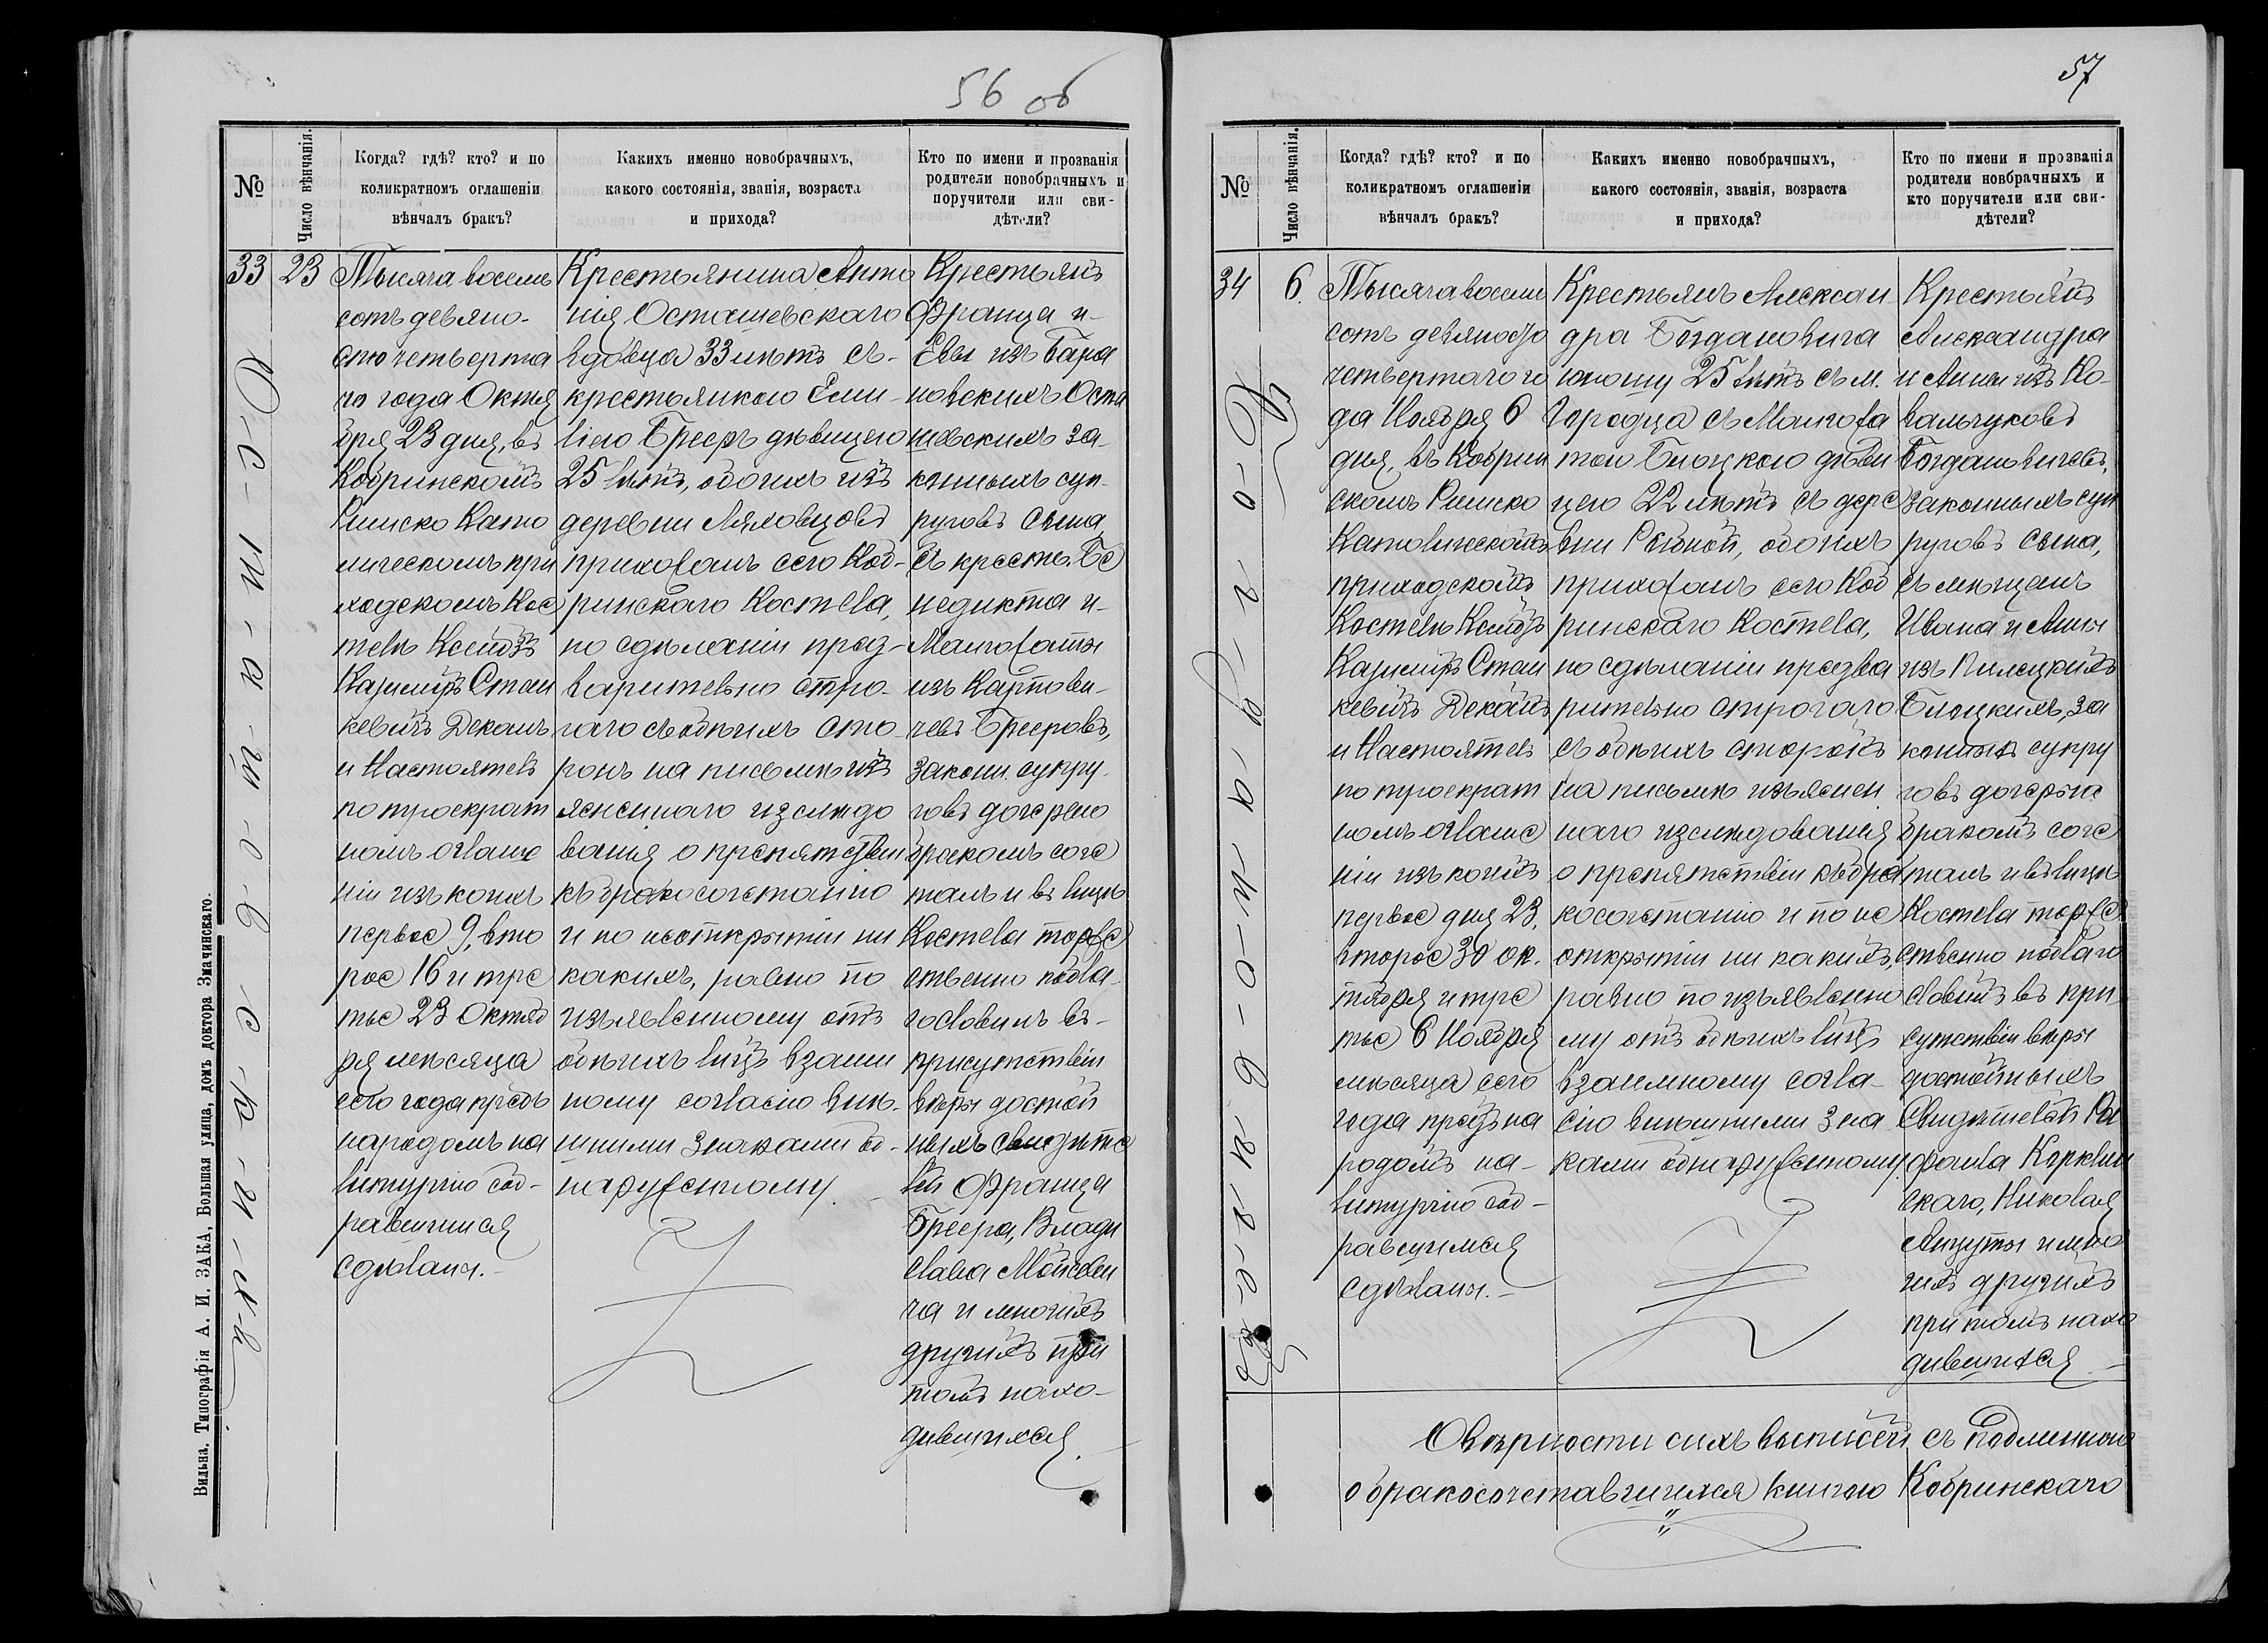 56 об
№
Число вѣнчанія.
Когда? гдѣ? кто? и по
коликратномъ оглашеніи
вѣнчалъ бракъ?
Какихъ именно новобрачныхъ,
какого состоянія, званія, возраста
и прихода?
Кто по имени и прозванія
родители новобрачныхъ и
поручители или сви-
дѣтели?
33
23
О-с-т-а-ш-е-в-с-к-і-й
Тысяча восемь
сотъ девяно-
сто четверта
го года Октя
бря 23 дня, въ
Кобринскомъ
Римско Като
лическомъ при
ходскомъ Кос
телѣ Ксендзъ
Казиміръ Стан
кевичъ Деканъ
и Настоятель
по троекрат
номъ оглаше
ніи изъ коихъ
первое 9, вто
рое 16 и тре
тье 23 Октяб
ря мѣсяца
сего года предъ
народомъ на
литургію соб-
равшимся
сдѣланы.-
Крестьянина Анто
нія Осташевскаго
вдовца 33 лѣтъ съ-
крестьянкою Еми-
ліею Брееръ дѣвицею
25 лѣтъ, обоихъ изъ
деревни Ляховцовъ
прихожанъ сего Коб-
ринскаго Костела,
по сдѣланіи пред-
варительно стро-
гаго съ обѣихъ сто-
ронъ на письмѣ изъ
ясненнаго изслѣдо
ванія о препятствіи
къ бракосочетанію
и по неоткрытіи ни
какихъ, равно по
изъявленному отъ
обѣихъ лицъ взаим
ному согласію внѣ-
шними знаками об-
наруженному.-
Крестьянъ
Франца и-
Евы изъ Бара
новскихъ Оста
шевскихъ за-
конныхъ суп-
руговъ сына
съ крестьян. Бе
недикта и-
Малгожаты
изъ Картови-
чевъ Брееровъ,
законн. супру-
говъ дочерью
бракомъ соче
талъ и въ лицѣ
Костела торже
ственно побла-
гословилъ въ-
присутствіи
вѣры достой
ныхъ свидѣте
лей Франца
Бреера, Влади
слава Мойсеви
ча и многихъ
другихъ при
томъ нахо-
дившихся.-
Вильна. Типографія А. И. ЗАКА, Большая улица, домъ доктора Змачинскаго.
57
№
Число вѣнчанія.
Когда? гдѣ? кто? и по
коликратномъ оглашеніи
вѣнчалъ бракъ?
Какихъ именно новобрачныхъ,
какого состоянія, званія, возраста
и прихода?
Кто по имени и прозванія
родители новбрачныхъ и
кто поручители или сви-
дѣтели?
34
6.
Тысяча восемь
сотъ девяносто
четвертаго го
да Ноября 6
дня, въ Кобрин
скомъ Римско
Католическомъ
приходскомъ
Костелѣ Ксендзъ
Казиміръ Стан
кевичъ Деканъ
и Настоятель
по троекрат
номъ оглаше
ніи изъ коихъ
первое дня 23,
второе 30 ок-
тября и тре
тье 6 Ноября
мѣсяца сего
года предъ на
родомъ на-
литургію соб-
равшимся
сдѣланы.-
Крестьянъ Алексан
дра Богдановича
юношу 25 лѣтъ съ м.
Городца съ Малгожа
тою Блоцкою дѣви
цею 22 лѣтъ съ дере
вни обоихъ
прихожанъ сего Коб
ринскаго Костела,
по сдѣланіи предва
рительно строгаго
съ обѣихъ сторонъ
на письмѣ изъяснен
наго изслѣдованія
о препятствіи къ бра
косочетанію и по не
открытіи ни какихъ,
равно по изъявленно
му отъ обѣихъ лицъ
взаимному согла-
сію внѣшними зна
ками обнаруженному.
Крестьянъ
Александра
и Анны изъ Ко-
вальчуковъ
Богдановичевъ,
законныхъ суп
руговъ сына,
съ мѣщанъ
Ивана и Анны
изъ Пилецкихъ
Блоцкихъ, за
конныхъ супру
говъ дочерью
бракомъ соче
талъ и въ лицѣ
Костела торже
ственно поблаго
словилъ въ при
сутствіи вѣры
достойныхъ
Свидѣтелей Ра
фаила
скаго, Николая
Анцуты и мно
гихъ другихъ
при томъ нахо
дившихся.-
О вѣрности сихъ выписей съ подлинною
о бракосочетавшихся книгою Кобринскаго